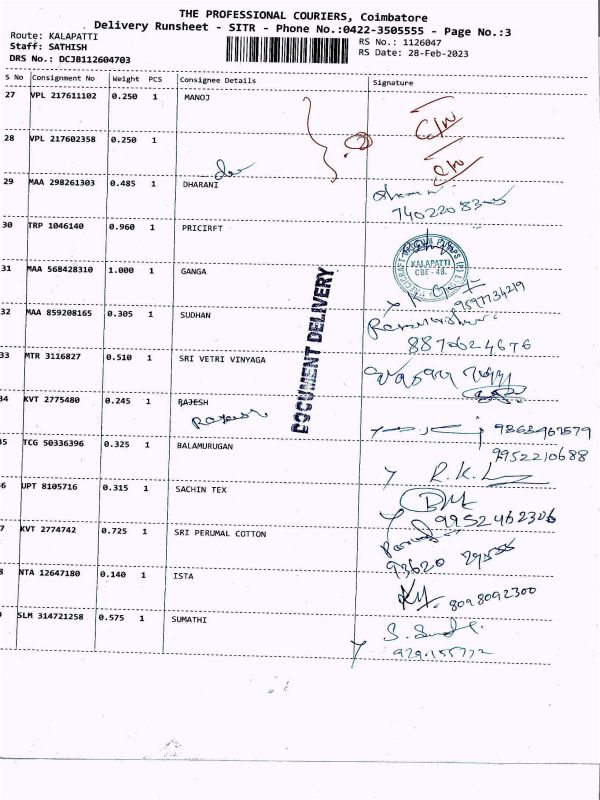 THE PROFESSIONAL COURIERS, Coimbatore
Delivery Runsheet - SITR - Phone No.:0422-3505555 - Page No.:3
Route: KALAPATTI
RS No.: 1126047
Staff: SATHISH
RS Date: 28-Feb-2023
DRS No.: DCJB112604703
S No Consignment No Weight PCS Consignee Details Signature
27 VPL 217611102 0.250 1 MANOJ
28 VPL 217602358 0.250 1
29 MAA 298261303 0.485 1 DHARANI
30 TRP 1046140 0.960 1 PRICIRFT
KALAPATTI
CBE-48.
31 MAA 568428310 1.000 1 GANGA
32 MAA 859208165 0.305 1 SUDHAN
8870624676
33 MTR 3116827 0.510 1 SRI VETRI VINYAGA
DOCUMENT DELIVERY
34 KVT 2775480 0.245 1 RAJESH
Rajesh
9363467579
35 TCG 50336396 0.325 1 BALAMURUGAN
9952210688
R.K.L
6 UPT 8105716 0.315 1 SACHIN TEX
9952462306
7 KVT 2774742 0.725 1 SRI PERUMAL COTTON
93620
8 NTA 12647180 0.140 1 ISTA
8098092300
SLM 314721258 0.575 1 SUMATHI